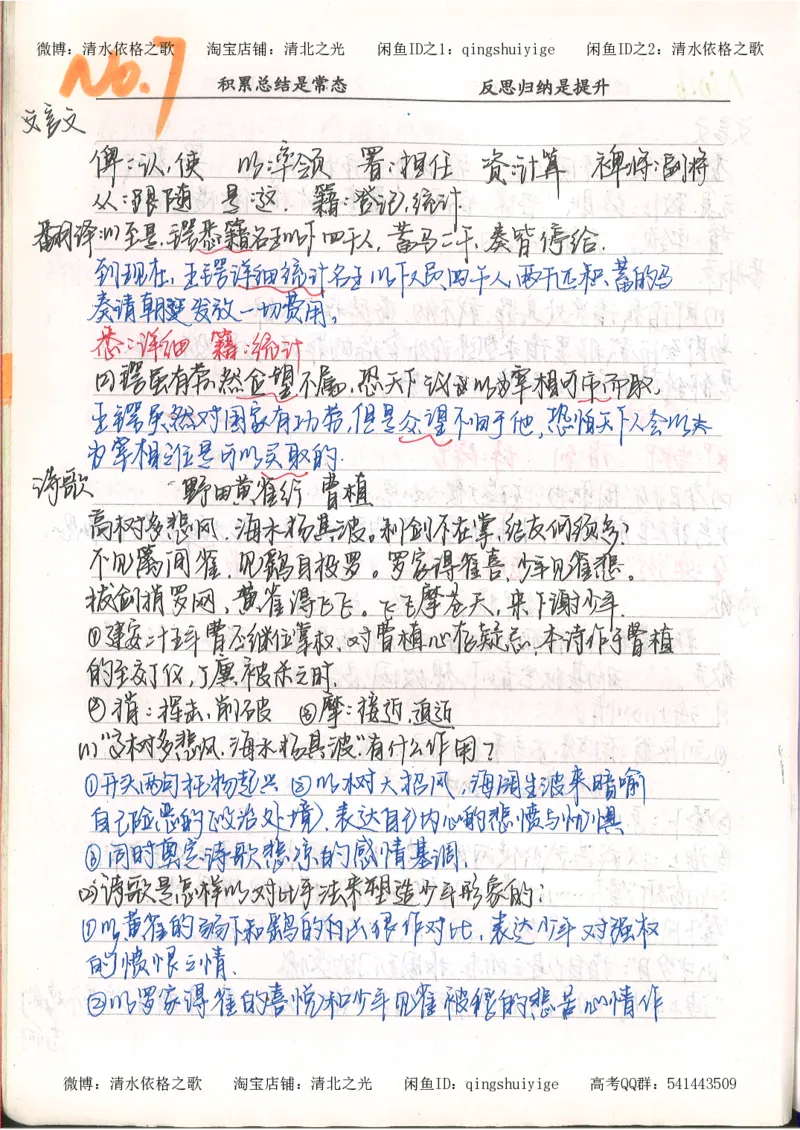 微博：清水依格之歌 淘宝店铺：清北之光 闲鱼ID之1：qingshuiyige 闲鱼ID之2：清水依格之歌
No.7
积累总结是常态 反思归纳是提升
文言文
俾：认，使 以：率领 署：担任 资：计算 裨将：副将
从：跟随 是：这 籍：登记，统计
翻译：(1)至是，锷悉籍名王以下四千人，畜马二千，奏皆停给.
到现在，王锷详细统计名王以下人员四千人，两千匹积蓄的马
奏请朝廷发放一切费用。
悉：详细 籍：统计
(2)锷虽有劳，然企望不属，恐天下议以为宰相可市而取。
王锷虽然对国家有功劳，但是众望不归于他，恐怕天下人会以为
为宰相之位是可以买取的.
诗歌 野田黄雀行 曹植
高树多悲风，海水扬其波。利剑不在掌，结友何须多？
不见篱间雀，见鹞自投罗。罗家得雀喜，少年见雀悲。
拔剑捎罗网，黄雀得飞飞。飞飞摩苍天，来下谢少年.
①建安二十五年曹丕继位掌权，对曹植心存疑忌，本诗作于曹植
的至交丁仪，丁廙被杀之时.
②捎：挥击，削破 ③摩：接近，迫近
(1)“高树多悲风，海水扬其波”有什么作用？
①开头两句托物起兴 ②以木对大招风，海阔生波来暗喻
自己险恶的(政治处境)，表达自己内心的悲愤与忧惧
③同时奠定诗歌悲凉的感情基调.
(2)诗歌是怎样以对比手法来塑造少年形象的：
①以黄雀的弱下和鹞的凶狠作对比，表达少年对强权
的愤恨之情.
②以罗家得雀的喜悦和少年见雀被捉的悲苦心情作
微博：清水依格之歌 淘宝店铺：清北之光 闲鱼ID：qingshuiyige 高考QQ群：541443509